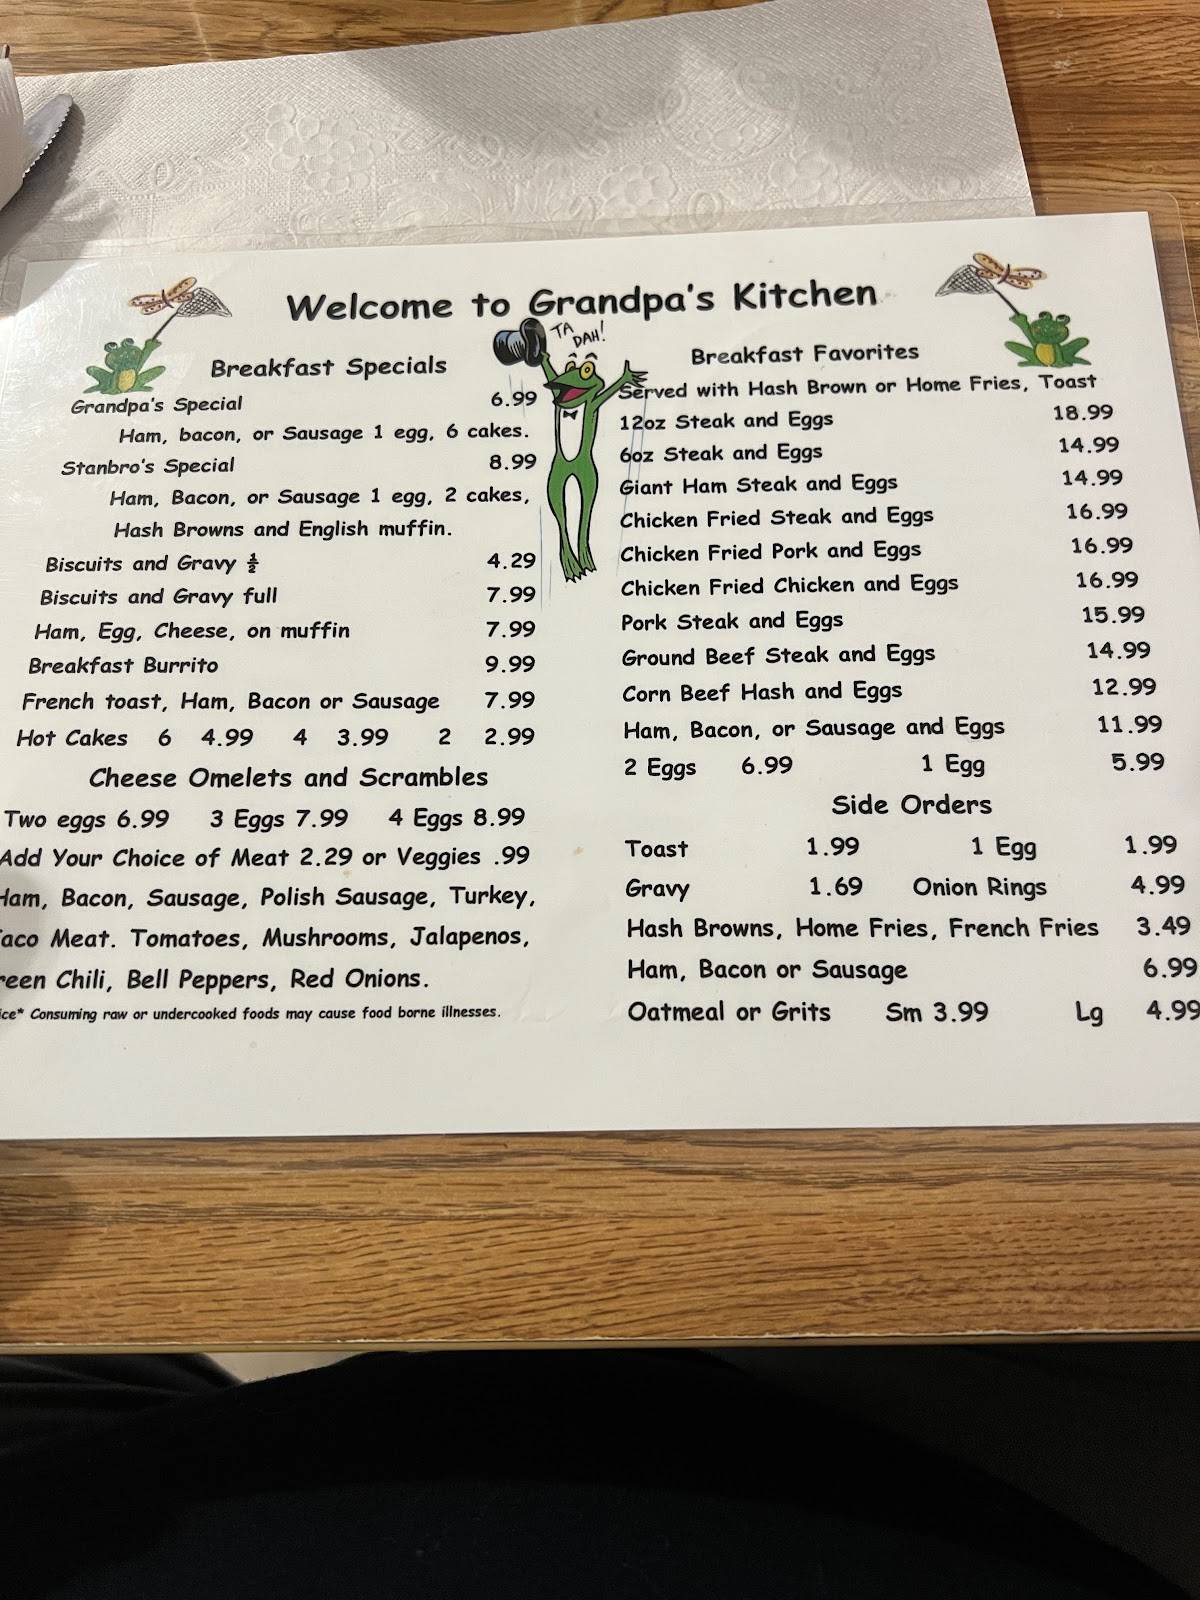 Welcome to Grandpa's Kitchen
TA
DAH!
Breakfast Specials
Grandpa's Special 6.99
Ham, bacon, or Sausage 1 egg, 6 cakes.
Stanbro's Special 8.99
Ham, Bacon, or Sausage 1 egg, 2 cakes,
Hash Browns and English muffin.
Biscuits and Gravy ½ 4.29
Biscuits and Gravy full 7.99
Ham, Egg, Cheese, on muffin 7.99
Breakfast Burrito 9.99
French toast, Ham, Bacon or Sausage 7.99
Hot Cakes 6 4.99 4 3.99 2 2.99
Cheese Omelets and Scrambles
Two eggs 6.99 3 Eggs 7.99 4 Eggs 8.99
Add Your Choice of Meat 2.29 or Veggies .99
Ham, Bacon, Sausage, Polish Sausage, Turkey,
Taco Meat. Tomatoes, Mushrooms, Jalapenos,
Green Chili, Bell Peppers, Red Onions.
Consuming raw or undercooked foods may cause food borne illnesses.
Breakfast Favorites
Served with Hash Brown or Home Fries, Toast
12oz Steak and Eggs 18.99
6oz Steak and Eggs 14.99
Giant Ham Steak and Eggs 14.99
Chicken Fried Steak and Eggs 16.99
Chicken Fried Pork and Eggs 16.99
Chicken Fried Chicken and Eggs 16.99
Pork Steak and Eggs 15.99
Ground Beef Steak and Eggs 14.99
Corn Beef Hash and Eggs 12.99
Ham, Bacon, or Sausage and Eggs 11.99
2 Eggs 6.99 1 Egg 5.99
Side Orders
Toast 1.99 1 Egg 1.99
Gravy 1.69 Onion Rings 4.99
Hash Browns, Home Fries, French Fries 3.49
Ham, Bacon or Sausage 6.99
Oatmeal or Grits Sm 3.99 Lg 4.99